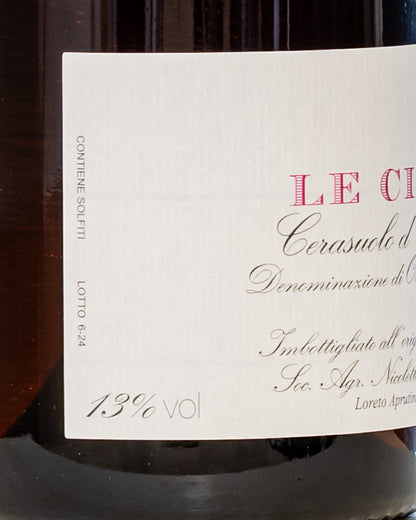 CONTIENE SOLFITI
LOTTO 6-24
LE CI
Cerasuolo d
Denominazione di O
Imbottigliato all'orig
Soc. Agr. Nicolett
Loreto Aprutin
13% vol